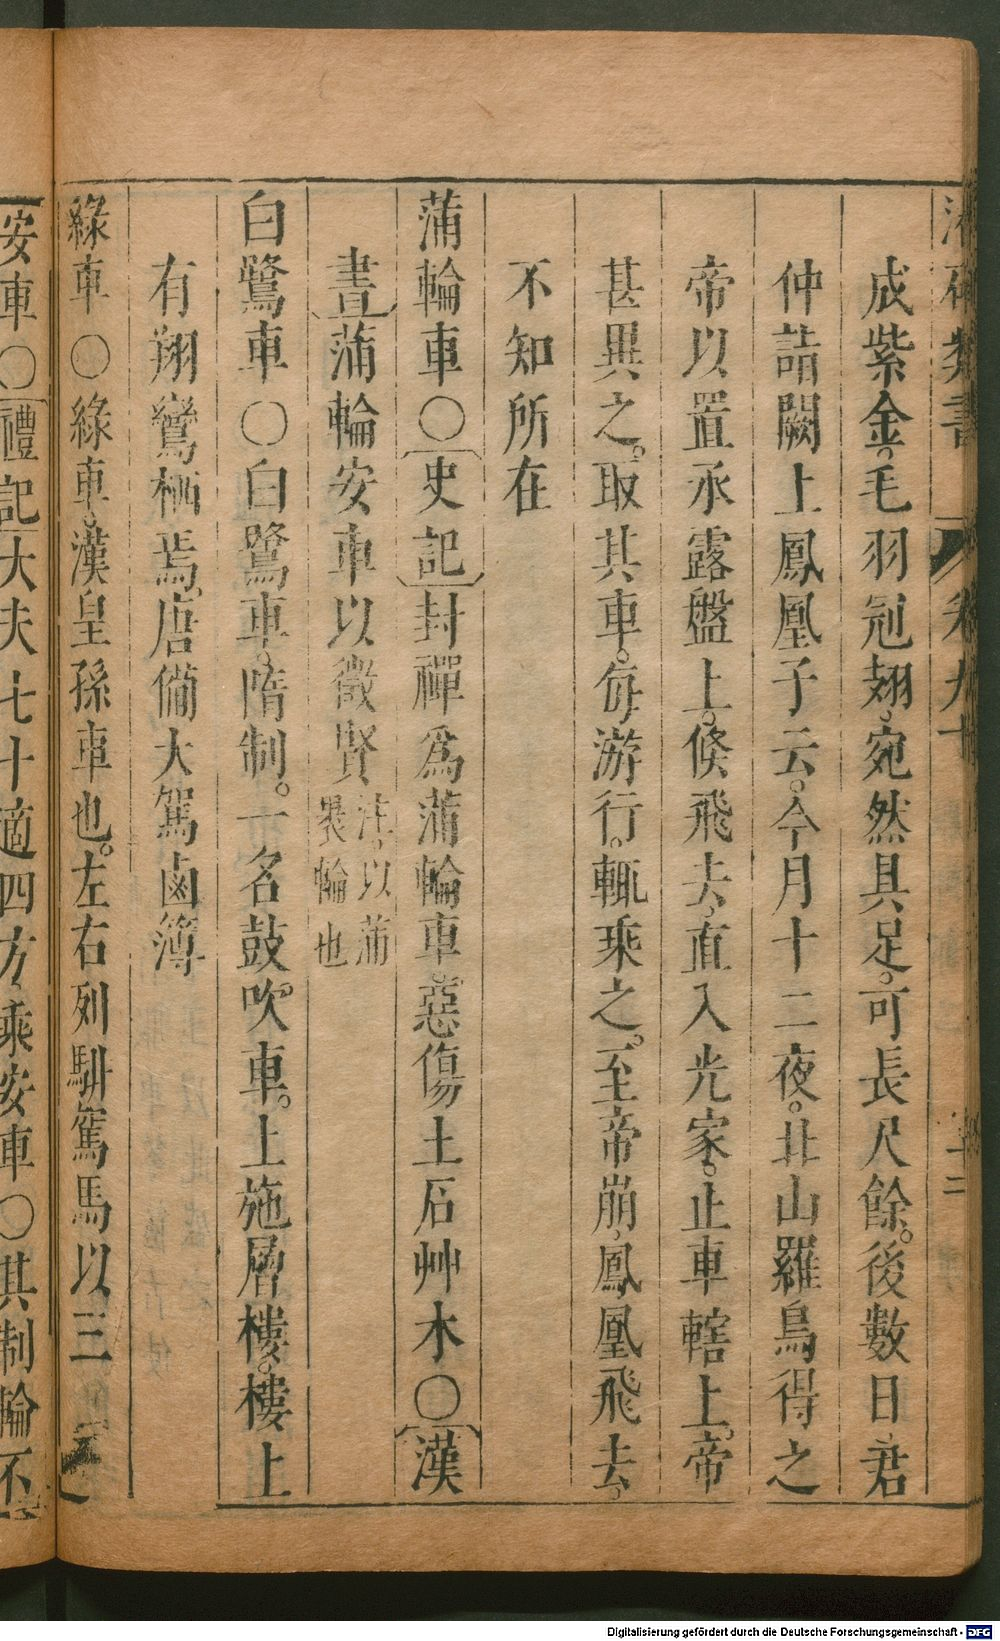 潛確類書 卷九十 二
成紫金。毛羽冠翅。宛然具足。可長尺餘。後數日君
仲詣闕上鳳凰子云。今月十二夜。北山羅鳥得之
帝以置承露盤上。倏飛去。直入光家。止車轄上。帝
甚異之。取其車。每游行。輒乘之。至帝崩。鳳凰飛去。
不知所在
蒲輪車〇史記封禪為蒲輪車。惡傷土石艸木〇漢
書蒲輪安車以徵賢注。以蒲裹輪也
白鷺車〇白鷺車。隋制。一名鼓吹車。上施層樓。樓上
有翔鷺栖焉。唐備大駕鹵簿
綠車〇綠車。漢皇孫車也。左右列騈駕馬以三
安車〇禮記大夫七十適四方。乘安車〇其制輪不
Digitalisierung gefördert durch die Deutsche Forschungsgemeinschaft - DFG